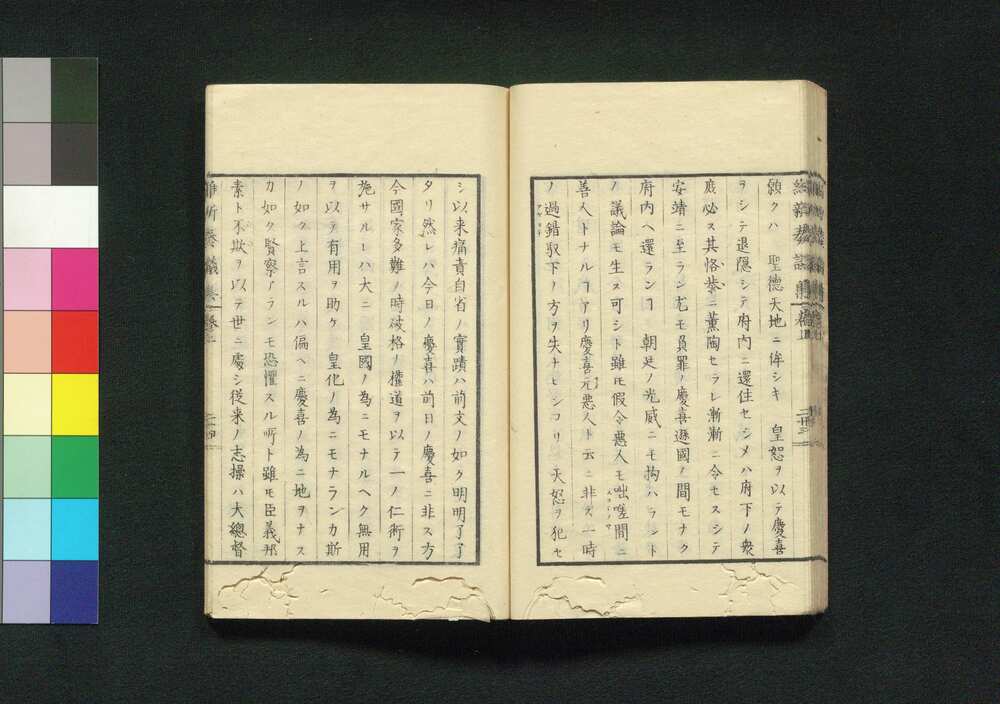 願クハ 聖德天地ニ侔シキ 皇恕ヲ以テ慶喜
ヲシテ退隱シテ府内ニ還住セシメハ府下ノ衆
庶必ス其恪恭ニ薫陶セラレ漸漸ニ令セスシテ
安靖ニ至ラン尤モ負罪ノ慶喜遜國ノ間モナク
府内ヘ還ランヿ 朝廷ノ光威ニモ拘ハラント
ノ議論モ生ス可シト雖𪜈假令惡人モ咄嗟間ニ
善人トナルヿアリ慶喜元惡人ト云ニ非ス一時
ノ過錯馭下ノ方ヲ失ナヒシヨリ 天怒ヲ犯セ
シ以来痛責自省ノ實蹟ハ前文ノ如ク明明了了
タリ然レハ今日ノ慶喜ハ前日ノ慶喜ニ非ス方
今國家多難ノ時破格ノ權道ヲ以テ一ノ仁術ヲ
施サルレハ大ニ 皇國ノ為ニモナルヘク無用
ヲ以テ有用ヲ助ケ 皇化ノ為ニモナランカ斯
ノ如ク上言スルハ偏ヘニ慶喜ノ為ニ地ヲナス
カ如ク賢察アランモ恐懼スル所ト雖𪜈臣義邦
素ト不欺ヲ以テ世ニ處シ從来ノ志操ハ大總督